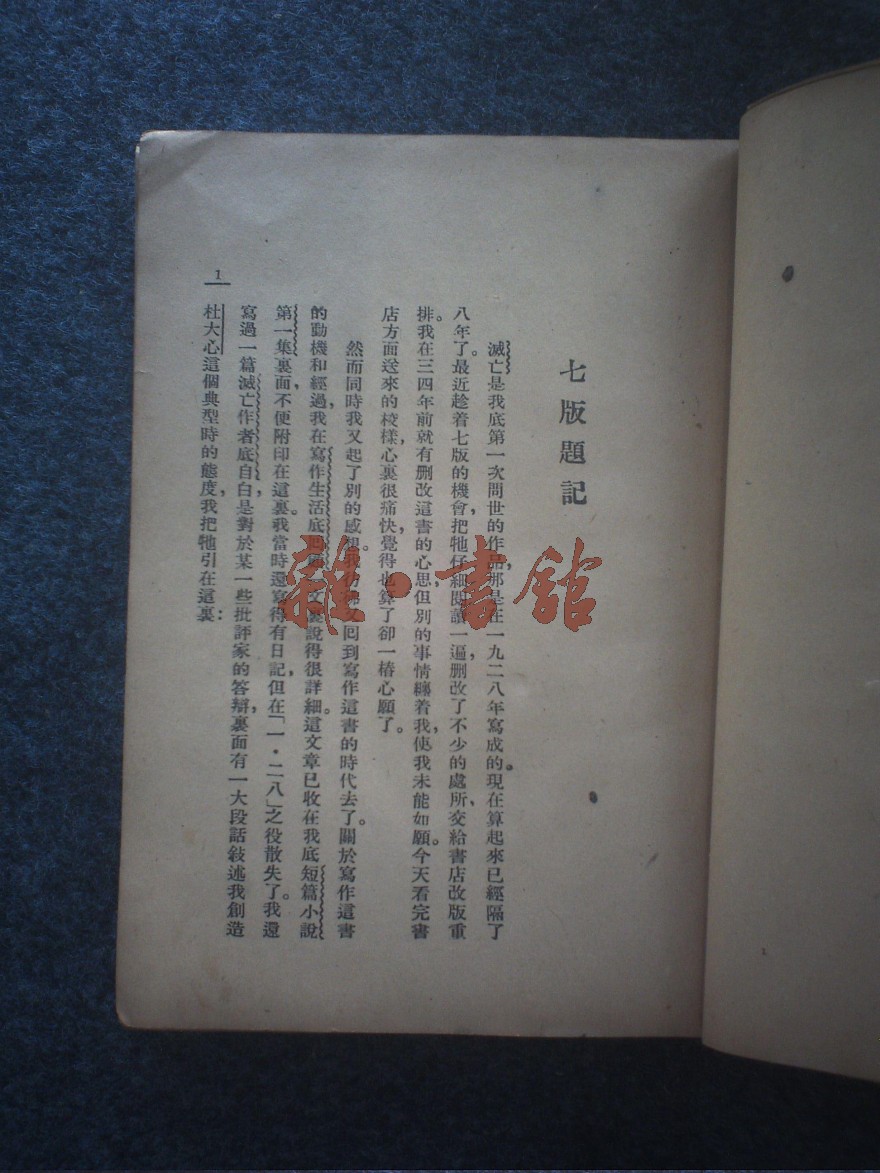 七版題記
滅亡是我底第一次問世的作品，那是在一九二八年寫成的。現在算起來已經隔了
八年了。最近趁着七版的機會，把牠仔細閱讀一遍，删改了不少的處所，交給書店改版重
排。我在三四年前就有删改這書的心思，但別的事情纏着我，使我未能如願。今天看完書
店方面送來的棱樣，心裏很痛快，覺得也算了卻一樁心願了。
然而同時我又起了別的感想。我彷彿又回到寫作這書的時代去了。關於寫作這書
的動機和經過，我在寫作生活底回顧一文裏說得很詳細。這文章已收在我底短篇小說
第一集裏面，不便附印在這裏。我當時還寫得有日記，但在「一·二八」之役散失了。我還
寫過一篇滅亡作者底自白，是對於某一些批評家的答辯，裏面有一大段話敍述我創造
杜大心這個典型時的態度，我把牠引在這裏：
1
雜·書館